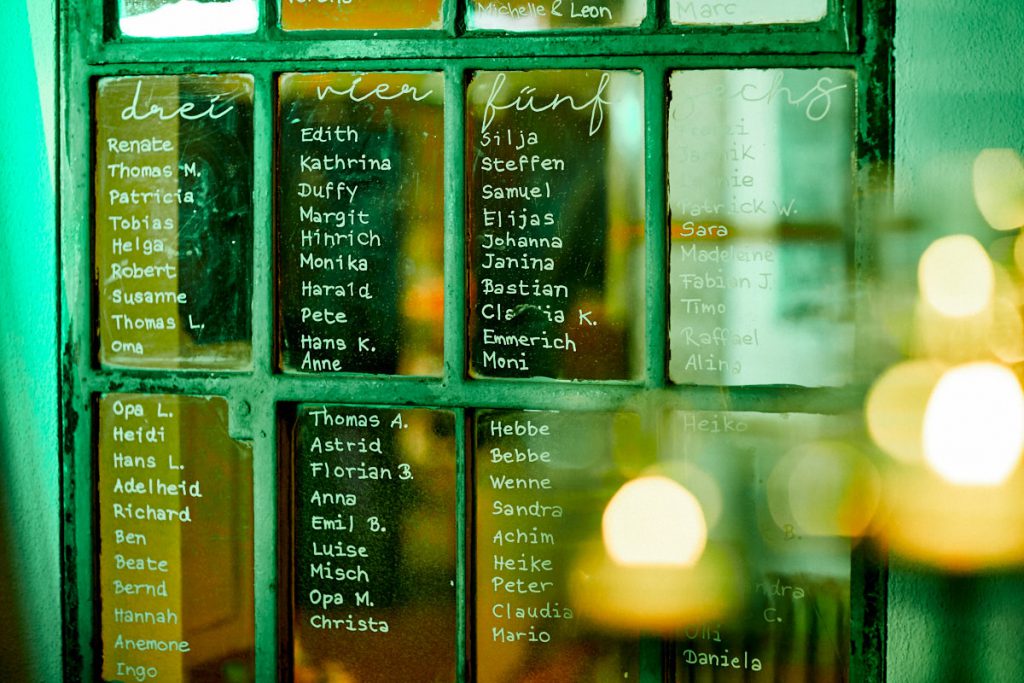 Michelle & Leon
Marc
drei
Renate
Thomas M.
Patricia
Tobias
Helga
Robert
Susanne
Thomas L.
Oma
Opa L.
Heidi
Hans L.
Adelheid
Richard
Ben
Beate
Bernd
Hannah
Anemone
Ingo
vier
Edith
Kathrina
Duffy
Margit
Hinrich
Monika
Harald
Pete
Hans K.
Anne
Thomas A.
Astrid
Florian B.
Anna
Emil B.
Luise
Misch
Opa M.
Christa
fünf
Silja
Steffen
Samuel
Elijas
Johanna
Janina
Bastian
Claudia K.
Emmerich
Moni
Hebbe
Bebbe
Wenne
Sandra
Achim
Heike
Peter
Claudia
Mario
sechs
Jannik
Patrick W.
Sara
Madeleine
Fabian J.
Timo
Raffael
Alina
Heiko
B.
C.
Olli
Daniela